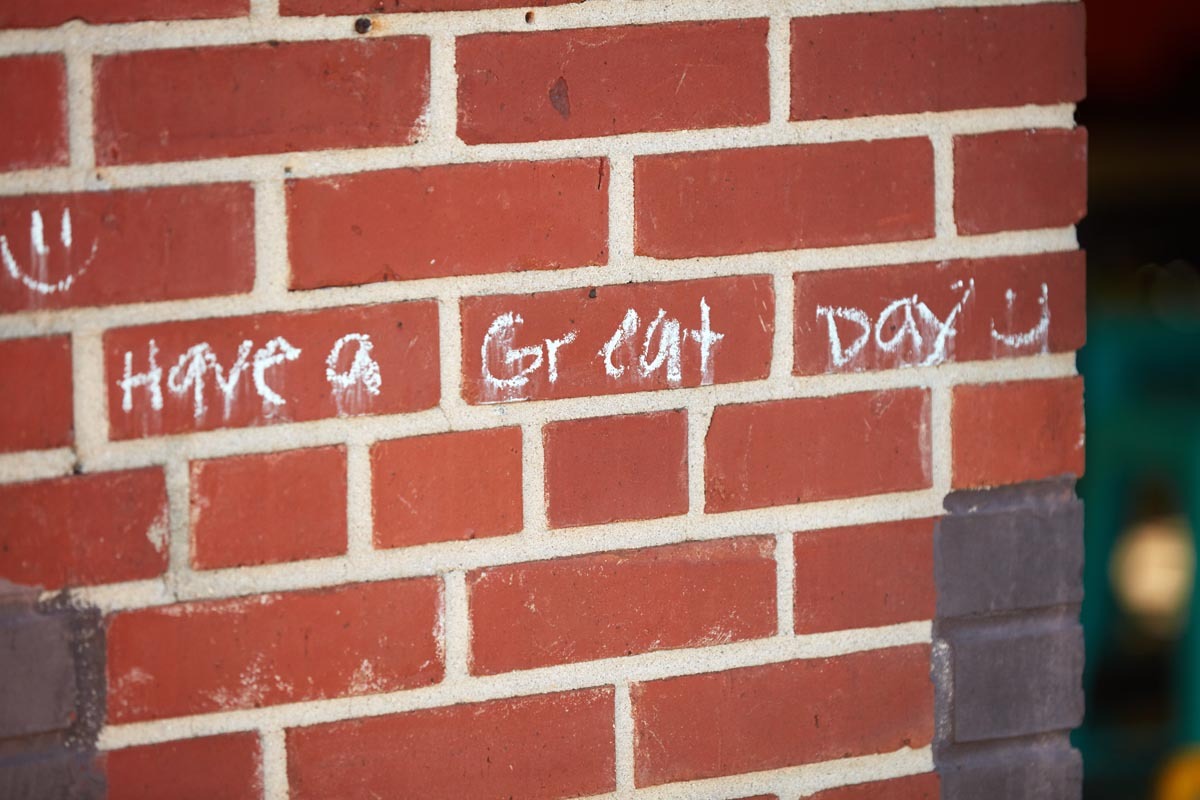 Have a Great Day